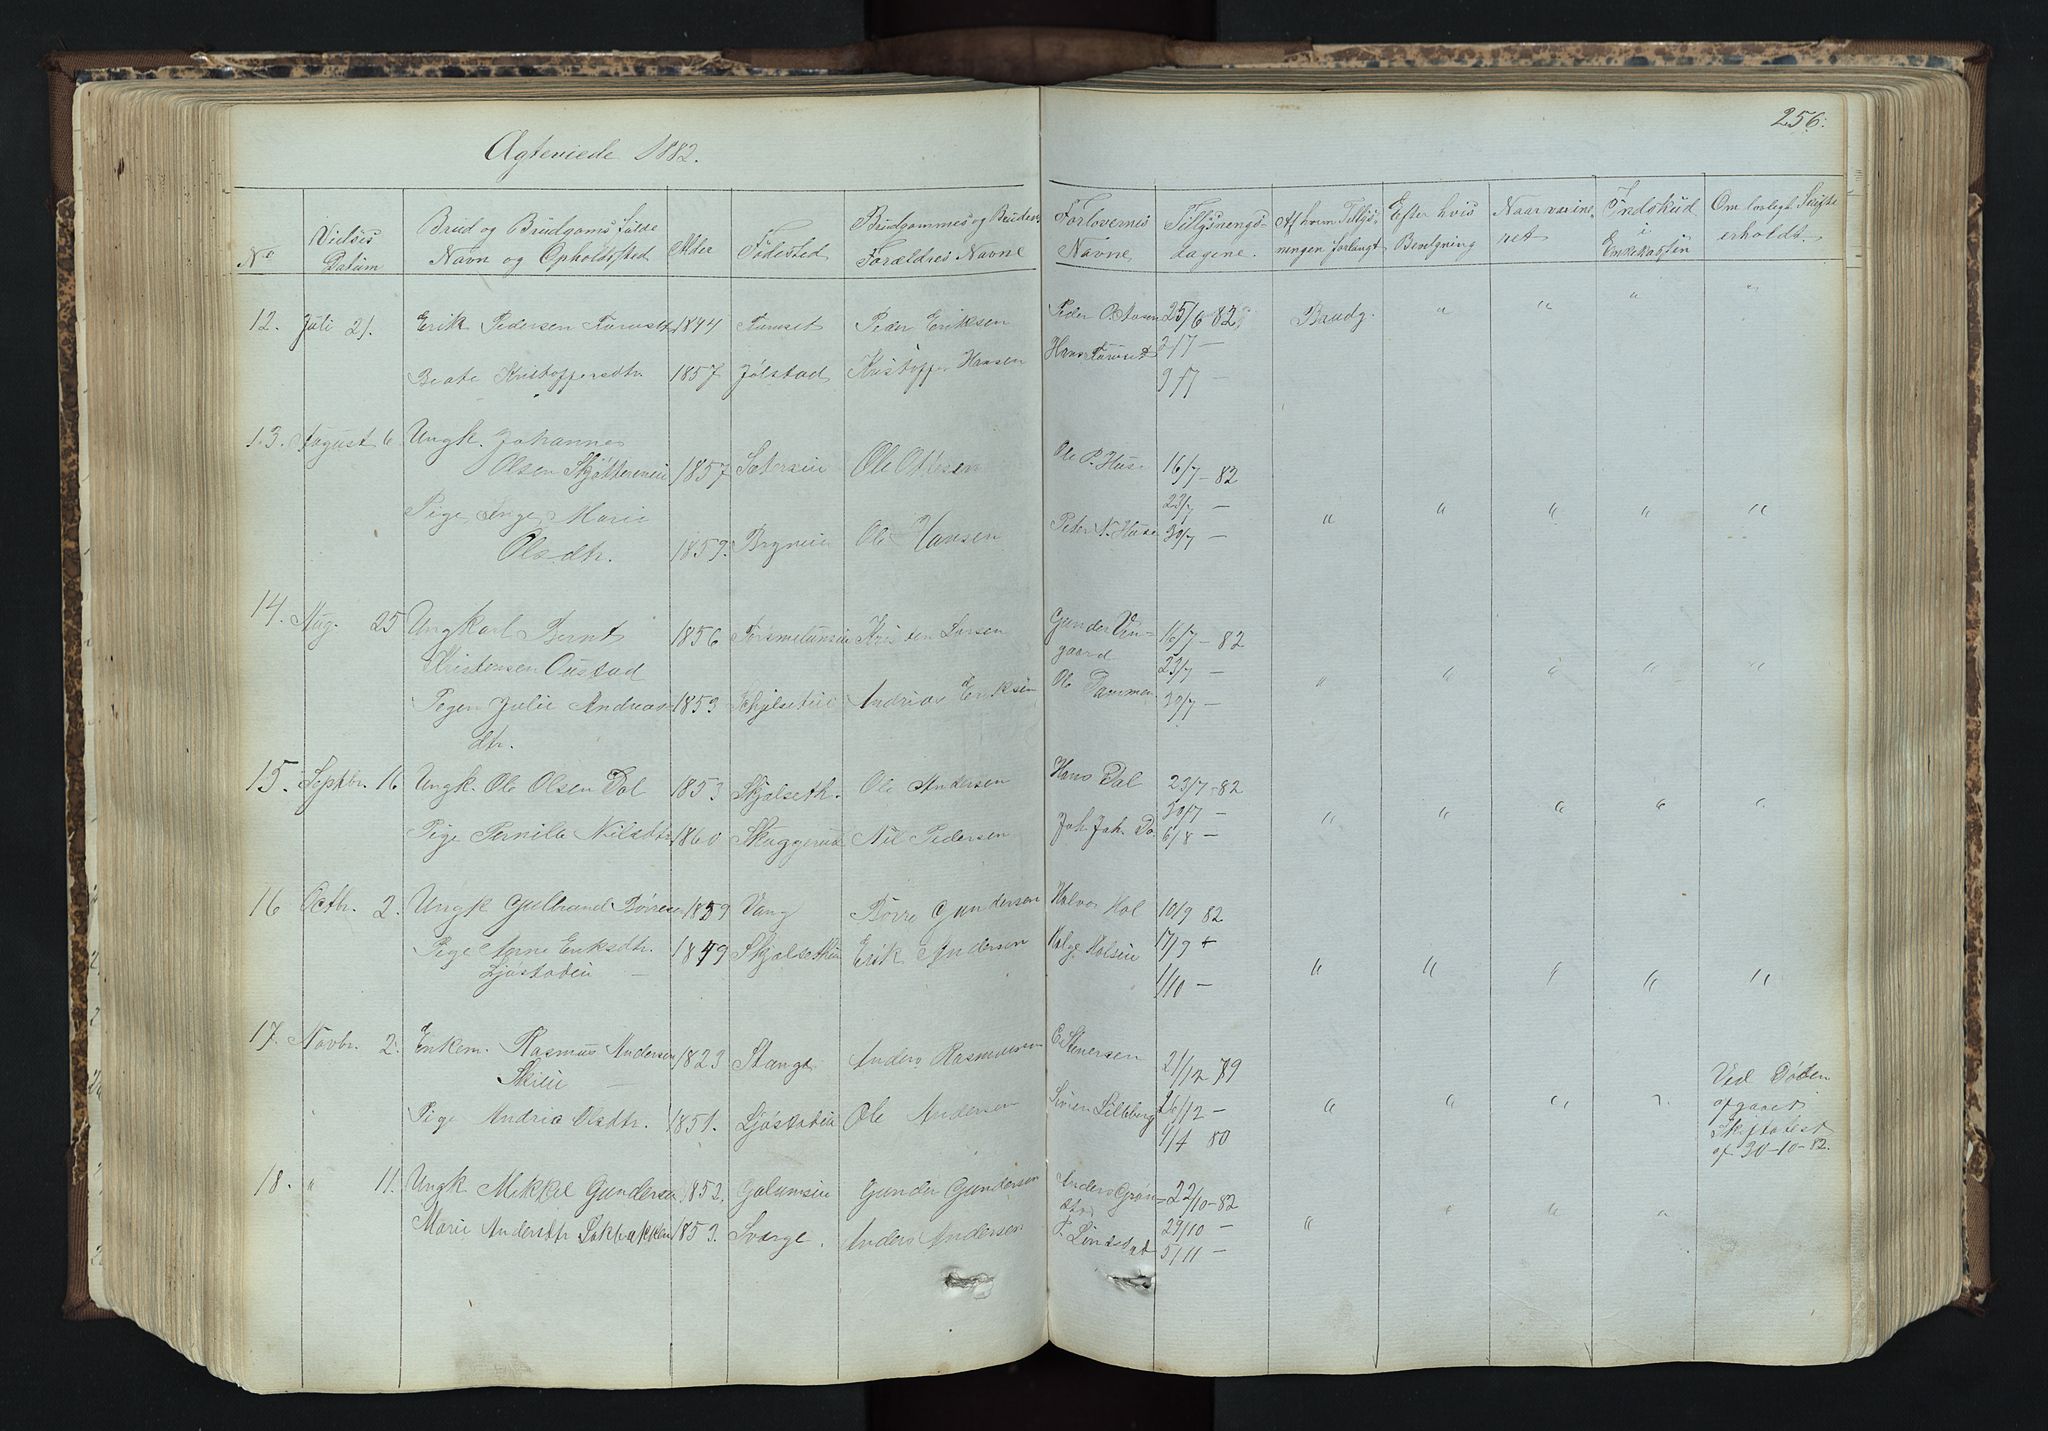 256.
Ægteviede 1882.
No
Vielses Datum
Brud og Brudgoms fulde Navn og Opholdssted
Alder
Fødested
Brudgommes og Brudens Forældres Navne
Forlovernes Navne
Tillysnings-dagene.
Af hvem Tillysningen forlangt
Efter hvis Bevilgning
Naar vaccineret
Indskud i Enkekassen
Om lovligt Skifte erholdt.
12. Juli 21. Erik Pedersen Furuset 1844 Furuset Peder Eriksen Peder O. Aasen 25/6 82 Baudg. " " " "
Hans Furuset 2/7 —
Beate Kristoffersdtr. 1857 Jølstad Kristoffer Hansen 9/7 —
13. August 6 Ungk. Johannes
Olsen Skjøttereneie 1857 Sætereie Ole Ottesen Ole P. Huse 16/7 — 82
Pige Inge Marie 23/7 — " " " " "
Olsdtr. 1859. Brynieie Ole Hansen Peter N. Huse 30/7 —
14. Aug. 25 Ungkarl Bernt 1856 Kristen Larsen Gunder Vin- 16/7 — 82
Kristensen Oustad gaard 23/7 —
Pigen Julie Andreas- 1853 Skjelseteie Andrias Eriksen Ole Pammen 30/7 — " " " " "
dtr.
15. Septbr. 16 Ungk. Ole Olsen Dal 1853 Skjelseth. Ole Andersen Hans Dal 23/7 — 82
30/7 — " " " " "
Pige Pernille Nilsdtr 1860 Skuggerud Nil Pedersen Joh. Joh. Da 6/8 —
16 Octbr. 2. Ungk Gulbrand Børresen 1859 Vang Børre Gundersen Halvor Hol 10/9 82
Pige Anne Eriksdtr. 1849 Skjelsetheie Erik Andersen Helge Holseie 17/9 +
Ljøstadeie — 1/10 — " " " " "
17. Novbr. 2. Enkem. Rasmus Andersen 1823 Stange Anders Rasmussen E. Stenersen 21/12 79 Ved Døden
Skieie — afgaaet
Pige Andrea Olsdtr. 1851. Ljøstadeie Ole Andersen Søren Lilleberg 26/12 — " " " " Skifteattest
1/4 80 af 30-10-82.
18. " 11. Ungk Mikkel Gundersen 1852. Galumseie Gunder Gundersen Anders Grøn- 22/10-82
stad
Marie Andersdtr Løkbakken 1853. Sverge. Anders Andersen 29/10 — " " " "
P. Lindstad 5/11 —